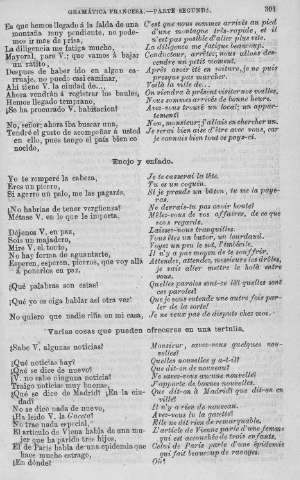 GRAMÁTICA FRANCESA.—PARTE SEGUNDA. 301
Es que hemos llegado á la falda de una
montaña muy pendiente, no podemos
ir más de prisa.
La diligencia me fatiga mucho.
Mayoral, pare V.; que vamos á bajar
un ratito.
Despues de haber ido en algun carruaje,
no puedo casi caminar.
Ahí tiene V. la ciudad de...
Ahora vendrán á registrar los baules,
Hemos llegado temprano.
¿Se ha procurado V. habitacion?
¡No, señor; ahora iba buscar una,
Tendré el gusto de acompañar á usted
en ello, pues tengo el país bien conocido,
C'est que nous sommes arrivés au pied
d'une montagne très-rapide, et il
n'est pas possible d'aller plus vite.
La diligence me fatigue beaucoup.
Conducteur, arrêtez; nous allons descendre
un petit moment.
Après avoir été en voiture, je ne puis
presque pas marcher.
Voilà la ville de...
On viendra à présent visiter nos malles,
Nous sommes arrivés de bonne heure.
Avez-vous trouvé un local; un appartement?
Non, monsieur; j'allais en chercher un.
Je serai bien aise d'être avec vous, car
je connais bien tout ce pays-ci.
Enojo y enfado.
Yo te romperé la cabeza,
Eres un pícaro,
Si agarro un palo, me las pagarás,
¿No habrias de tener vergüenza?
Métase V. en lo que le importa,
Déjenos V. en paz,
Sois un majadero,
Mire V. el bobo,
No hay forma de aguantarte,
Esperen, esperen, pícaros, que voy allá
á ponerlos en paz.
¡Qué palabras son estas!
¡Qué yo os oiga hablar así otra vez!
No quiero que nadie riña en mi casa,
Je te casserai la tête.
Tu es un coquin.
Si je prends un bâton, tu me la payeras.
Ne devrais-tu pas avoir honte?
Mêlez-vous de vos affaires, de ce que
vous regarde.
Laissez-nous tranquilles.
Vous êtes un butor, un lourdaud.
Voyez un peu le sot, l'imbécile.
Il n'y a pas moyen de te souffrir.
Attendez, attendez, messieurs les drôles,
je vais aller mettre le holà entre
vous.
Quelles paroles sont-ce là! quelles sont
ces paroles!
Que je vous entende une autre fois parler
de la sorte!
Je ne veux pas de dispute chez moi.
Varias cosas que pueden ofrecerse en una tertulia.
¿Sabe V. algunas noticias?
¿Qué noticias hay?
¿Qué se dice de nuevo?
¿V. no sabe ninguna noticia?
Traigo noticias muy buenas,
¿Qué se dice de Madrid? ¿En la ciudad?
No se dice nada de nuevo,
¿Ha leido V. la Gaceta?
No trae nada especial,
El artículo de Viena habla de una mujer
que ha parido tres hijos,
El de París habla de una epidemia que
hace mucho estrago,
¿En dónde?
Monsieur, savez-vous quelques nouvelles?
Quelles nouvelles y a-t-il?
Que dit-on de nouveau?
Ne savez-vous aucune nouvelle?
J'apporte de bonnes nouvelles.
Que dit-on à Madrid? que dit-on en
ville?
Il n'y a rien de nouveau.
Avez-vous lu la gazette?
Elle ne dit rien de remarquable.
L'article de Vienne parle d'une femme
qui est accouchée de trois enfants.
Celui de Paris parle d'une épidémie
qui fait beaucoup de ravages.
Où?